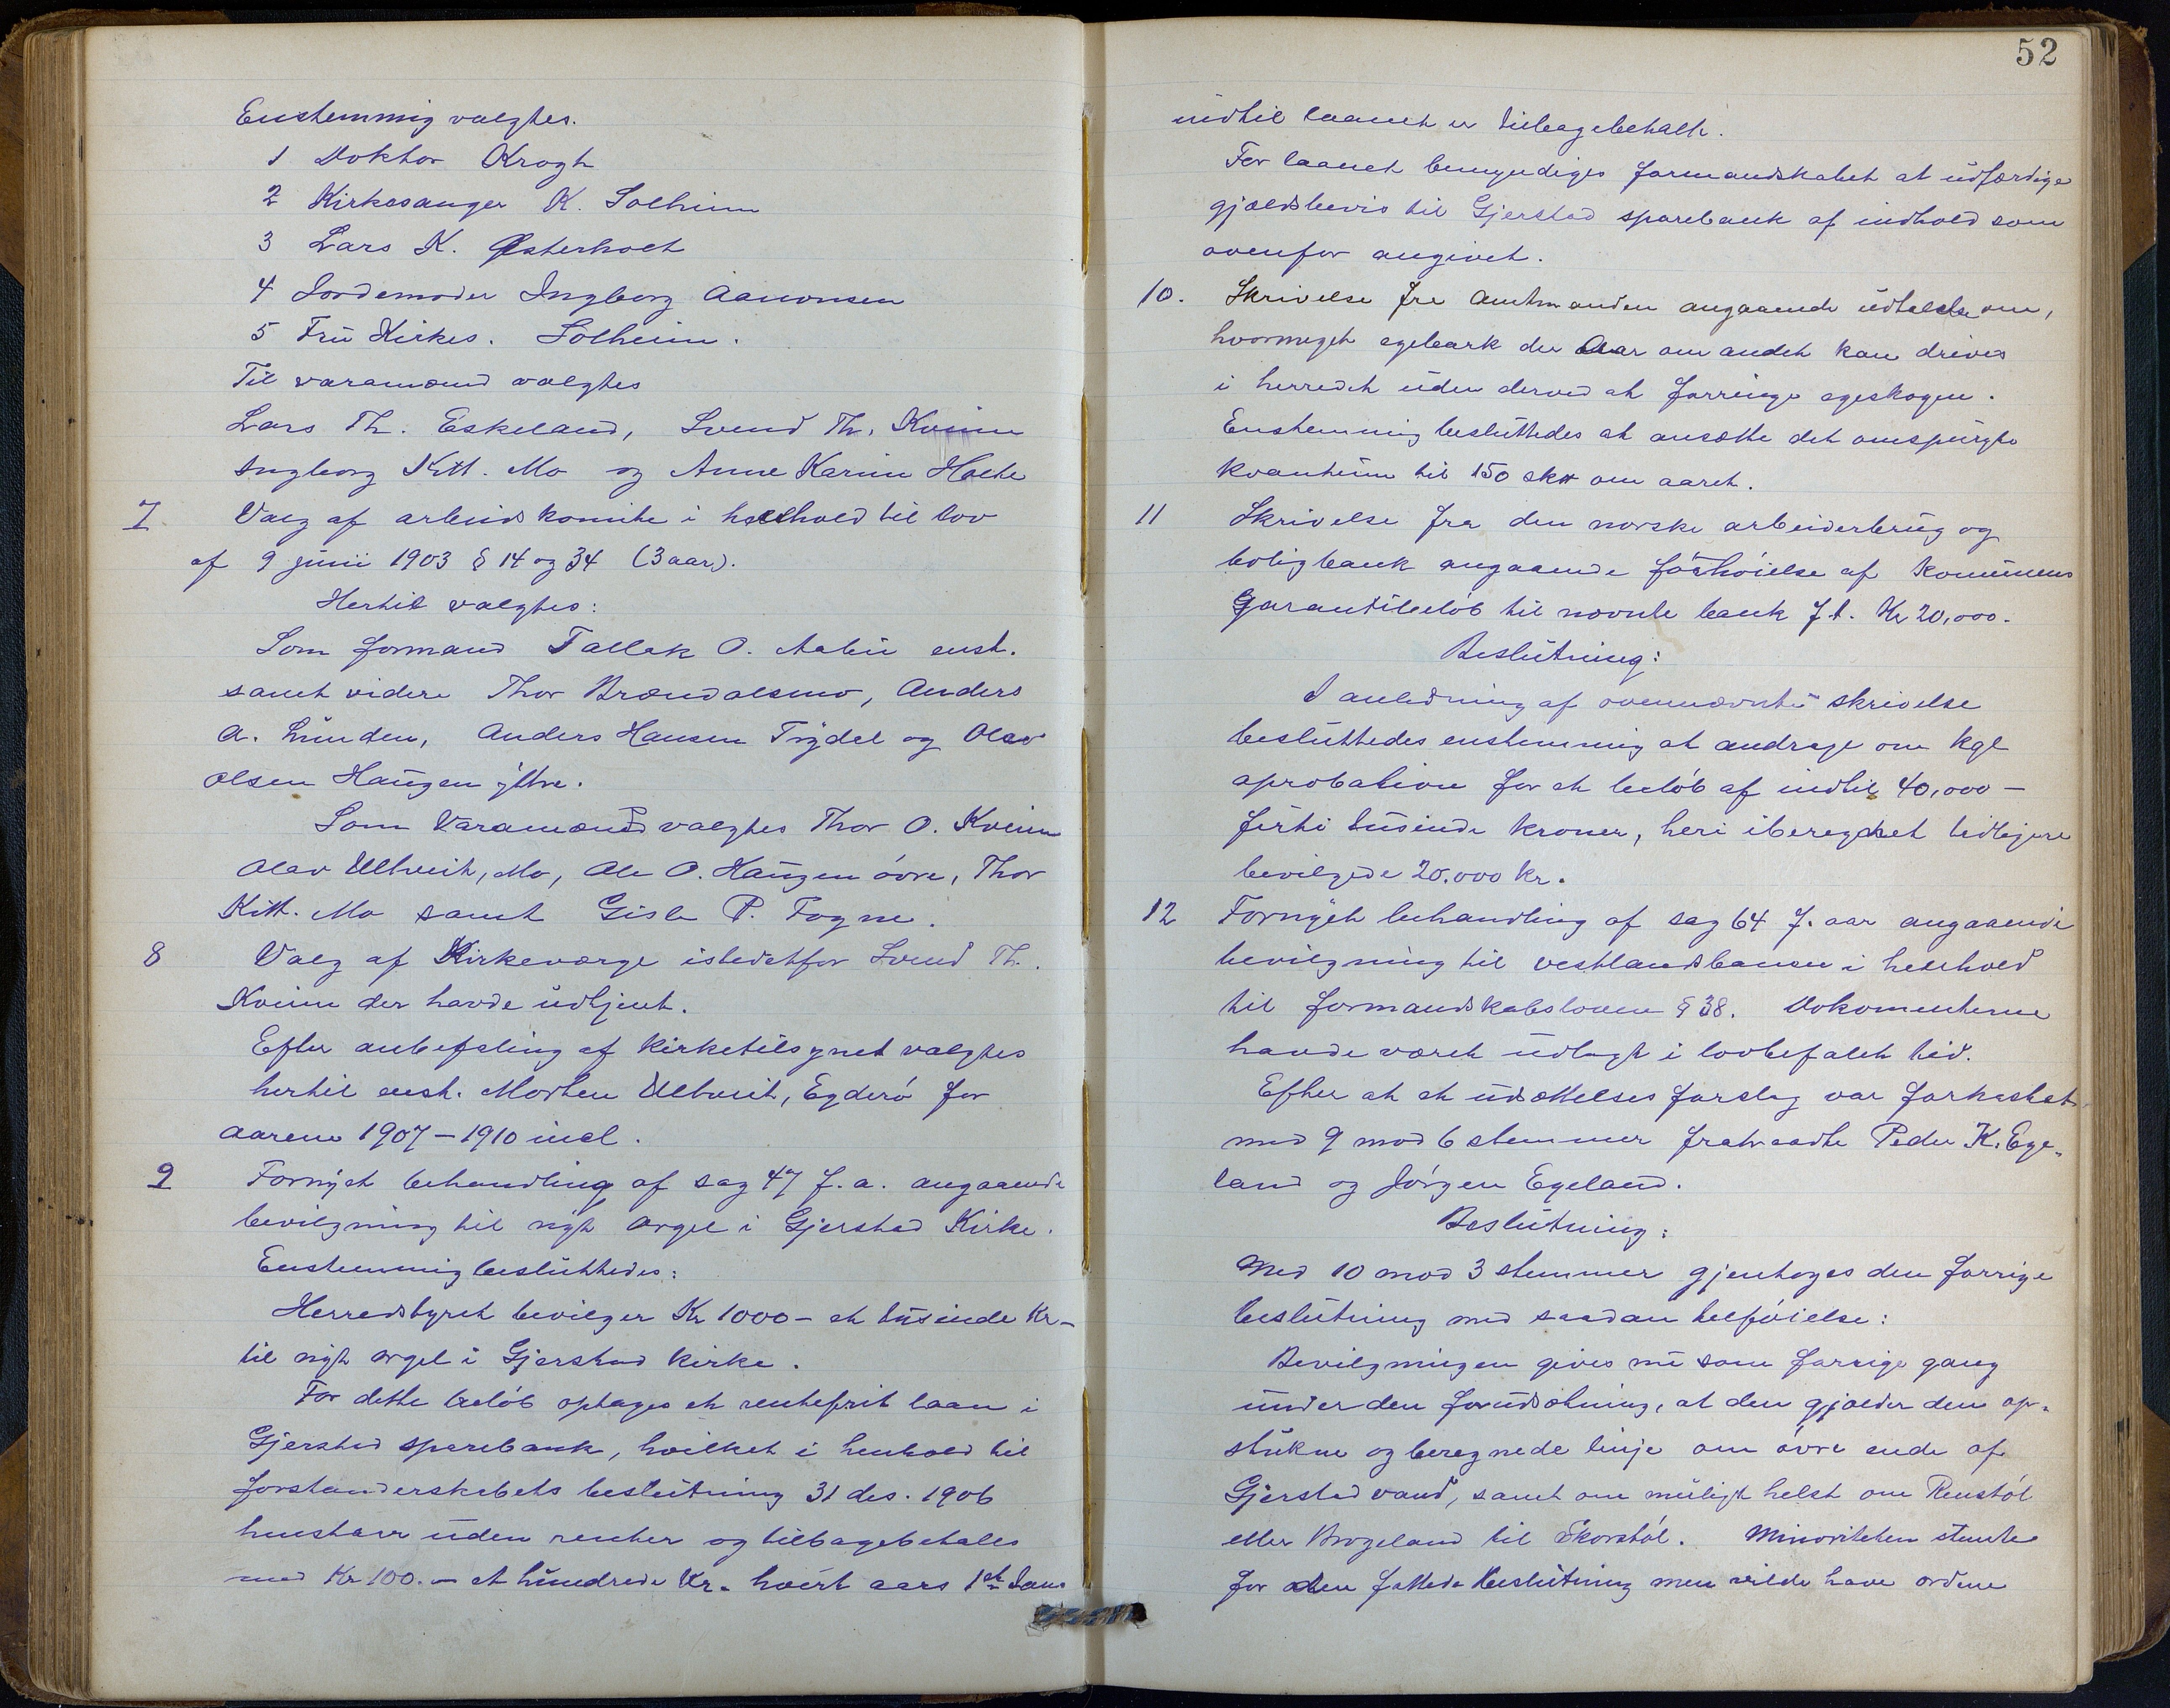 Enstemmig valgtes.
1 Doktor Krogh
2 Kirkesanger K. Solheim
3 Lars K. Østerholt
4 Jordemoder Ingborg Aanonsen
5 Fru Kirkes. Solheim.
Til varamænd valgtes
Lars Th. Eskeland, Svend Th. Kveim
Ingborg Kitt. Mo og Anne Karine Holte
7 Valg af arbeidskomite i henhold til lov
af 9 juni 1903 § 14 og 34 (3 aar).
Hertil valgtes:
Som formand Tallak O. Aabu enst.
samt videre Thor Brændalsmo, Anders
A. Lunden, Anders Hansen Trydal og Olav
Olsen Haugen ytre.
Som Varamænd valgtes Thor O. Kveim
Olav Ulltveit, Mo, Ole O. Haugen övre, Thor
Kitt. Mo samt Gisle P. Fogne.
8 Valg af Kirkeværge istedetfor Svend Th.
Kveim der havde udtjent.
Efter anbefaling af kirketilsynet valgtes
hertil enst. Morten Ulltveit, Egderö for
aarene 1907 – 1910 incl.
9 Fornyet behandling af sag 47 f. a. angaaende
bevilgning til nyt orgel i Gjerstad Kirke.
Enstemmig besluttedes:
Herredstyret bevilger Kr 1000 – et tusinde Kr –
til nyt orgel i Gjerstad kirke.
For dette belöb optages et rentefrit laan i
Gjerstad sparebank, hvilket i henhold til
forstanderskabets beslutning 31 des. 1906
henstaar uden renter og tilbagebetales
med Kr 100. – et hundrede Kr. hvert aars 1ste Jan.
52
indtil laanet er tilbagebetalt.
For laanet bemyndiges formandskabet at udfærdige
gjældsbevis til Gjerstad sparebank af indhold som
ovenfor angivet.
10. Skrivelse fra Amtmanden angaaende udtalelse om,
hvormeget egebark der Aar om andet kan drives
i herredet uden derved at forringe egeskogen.
Enstemmig besluttedes at ansætte det omspurgte
kvantum til 150 sk# om aaret.
11 Skrivelse fra den norske arbeiderbrug og
boligbank angaaende forhöielse af Komunens
Garantibelöb til nævnte bank f. t. Kr 20,000.
Beslutning:
I anledning af ovennævnte skrivelse
besluttedes enstemmig at andrage om kgl
aprobation for et belöb af indtil 40,000 –
förti tusinde kroner, heri iberegnet tidligere
bevilgede 20.000 kr.
12 Fornyet behandling af sag 64 f. aar angaaende
bevilgning til vestlandsbanen i henhold
til formandskabsloven § 38. Dokomenterne
havde været udlagt i lovbefalet tid.
Efter at et udsættelses forslag var forkastet
med 9 mod 6 stemmer fratraadte Peder K. Ege-
land og Jörgen Egeland.
Beslutning:
Med 10 mod 3 stemmer gjentoges den forrige
beslutning med saadan tilföielse:
Bevilgningen gives nu som forrige gang
under den forudsætning, at den gjælder den op-
stukne og beregnede linje om övre ende af
Gjerstadvand, samt om muligt helst om Renstöl
eller Brogeland til Skorstöl. Minoriteten stemte
for den fattede beslutning men vilde have ordene